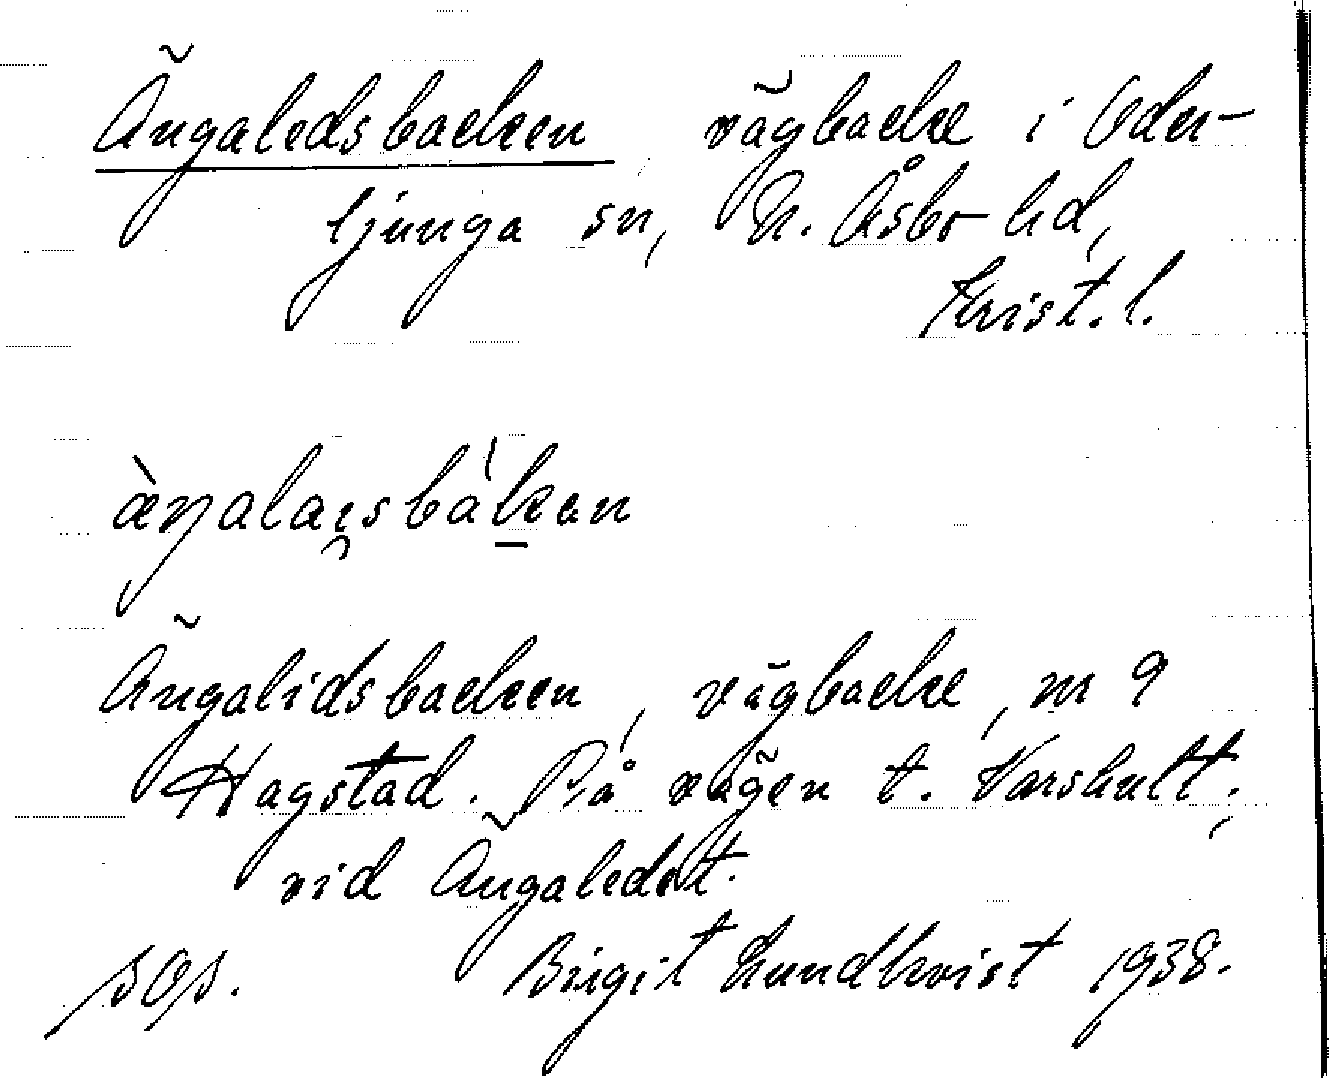 Ängaledsbacken vägbacke i Oder-
ljunga sn, N. Åsbo hd,
Krist. l.
Ängalidsbacken, vägbacke, nr 9
Hagstad. På vägen t. Varshult;
vid Ängaledet.
sOs. Birgit Lundkvist 1938.